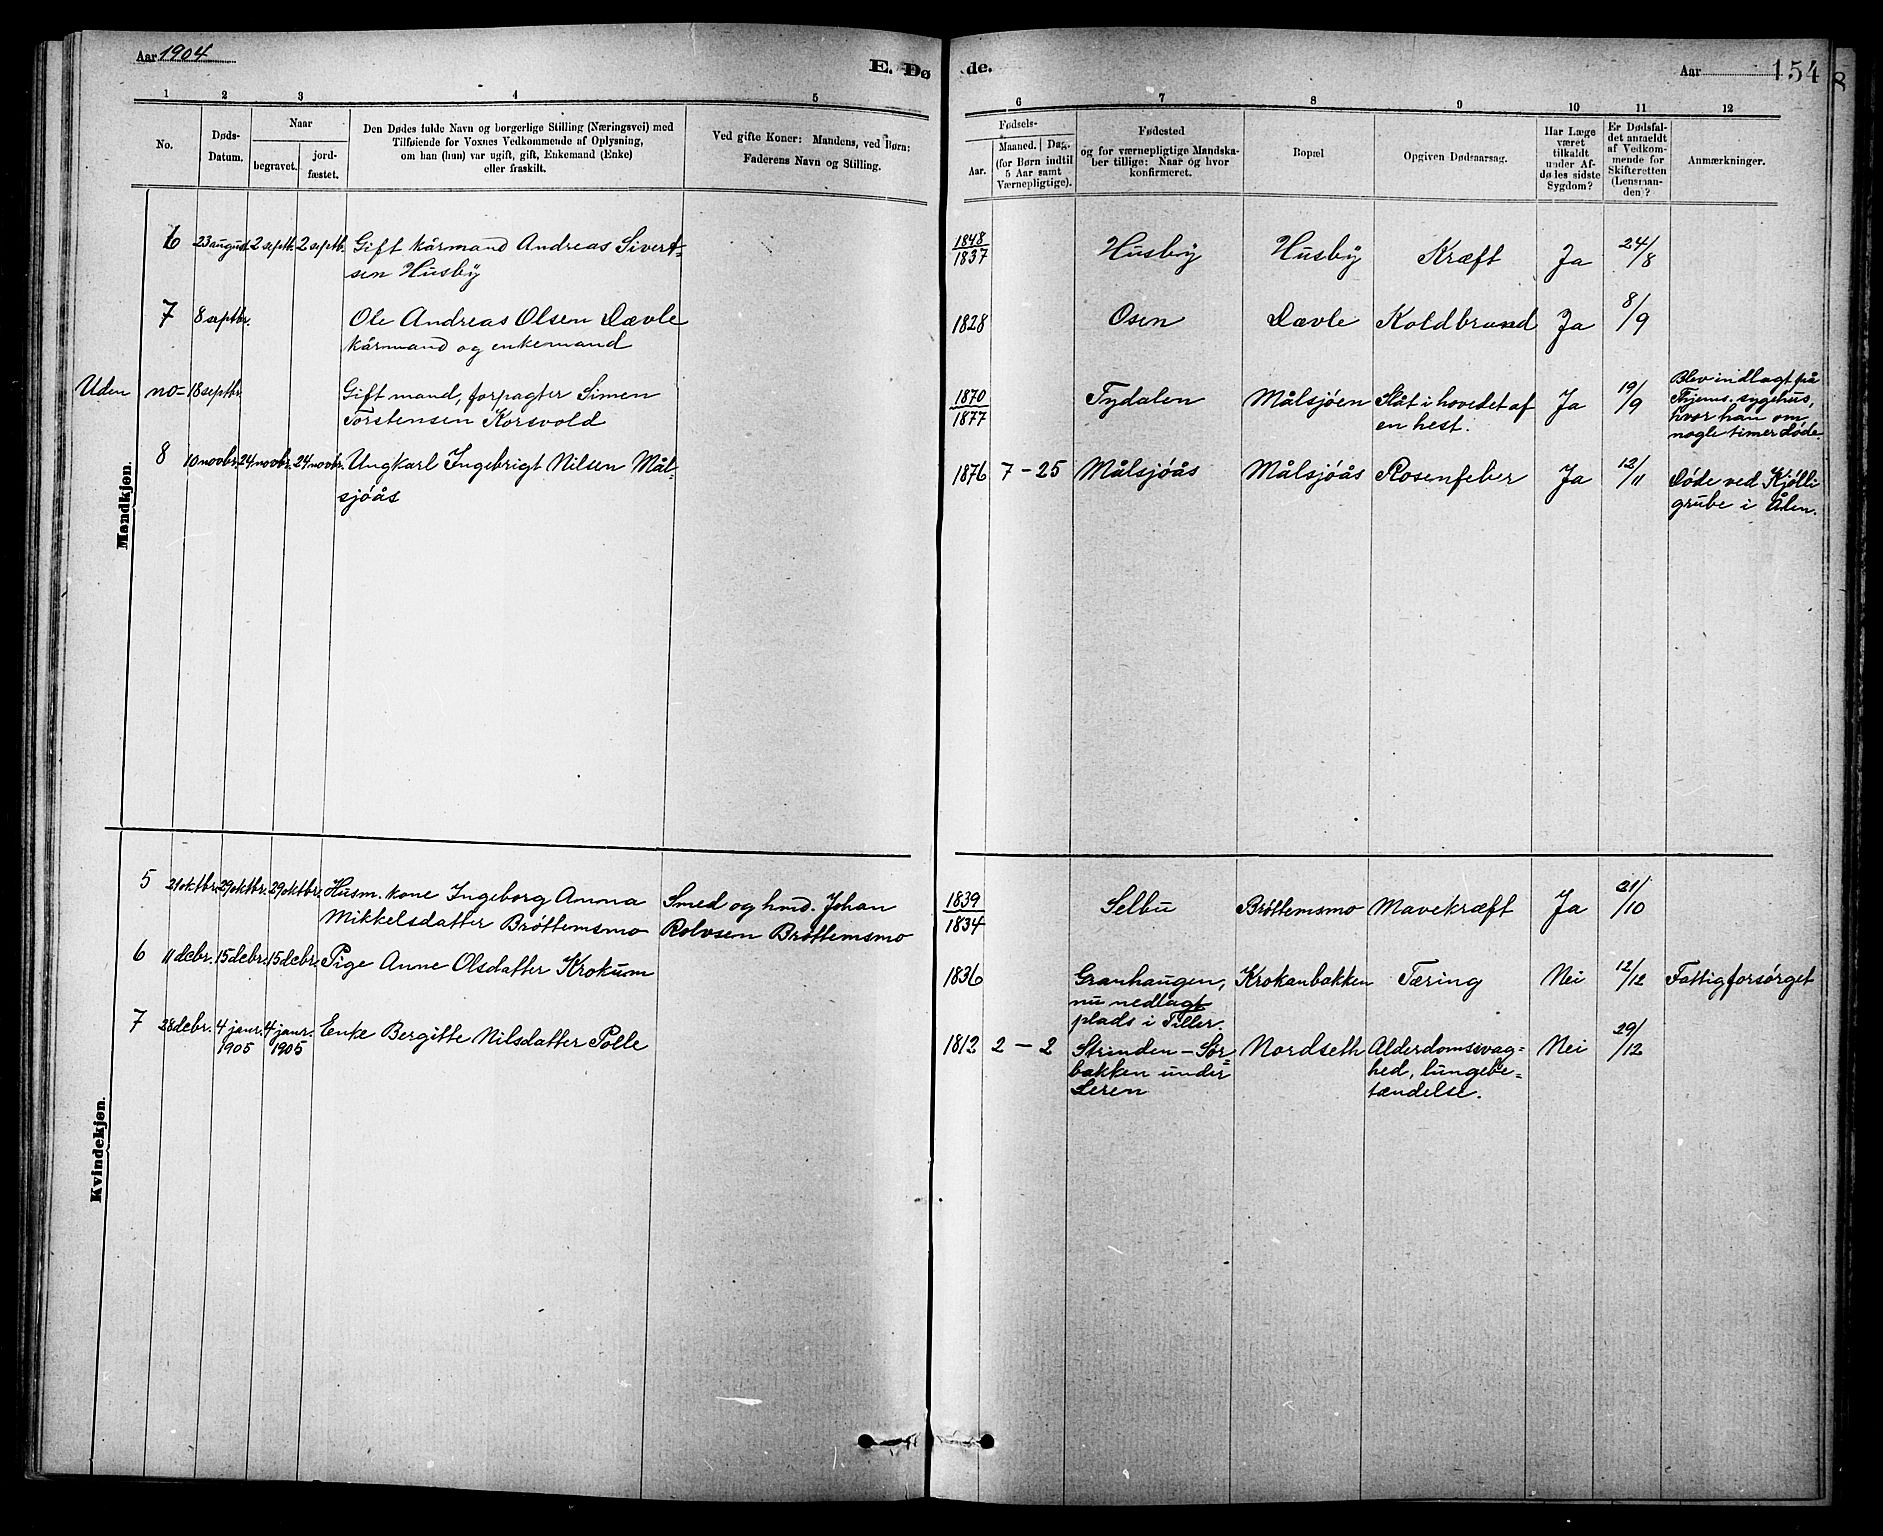 Aar 1904
E. Dø
de.
Aar
154
8
1 2 3 4 5
6 7 8 9 10 11 12
No.
Døds-
Datum.
Naar
begravet.
jord-
fæstet.
Den Dødes fulde Navn og borgerlige Stilling (Næringsvei) med
Tilføiende for Voxnes Vedkommende af Oplysning,
om han (hun) var ugift, gift, Enkemand (Enke)
eller fraskilt.
Ved gifte Koner: Mandens, ved Børn:
Faderens Navn og Stilling.
Fødsels-
Aar.
Maaned. Dag.
(for Børn indtil
5 Aar samt
Værnepligtige).
Fødested
og for værnepligtige Mandska-
ber tillige: Naar og hvor
konfirmeret.
Bopæl
Opgiven Dødsaarsag.
Har Læge
været
tilkaldt
under Af-
dødes sidste
Sygdom?
Er Dødsfal-
det anmeldt
af Vedkom-
mende for
Skifteretten
(Lensman-
den?
Anmærkninger.
Mandkjøn.
6 23 august 2 septb. 2 septb. Gift kårmand Andreas Sivert-
sen Husby
1848/1837 Husby Husby Kræft Ja 24/8
7 8 septbr. Ole Andreas Olsen Løvle
kårmand og enkemand
1828 Osen Løvle Koldbrand Ja 8/9
Uden no- 18 septbr. Gift mand, forpagter Simen
Torstensen Korsvold
1870/1877 Tydalen Målsjøen Slåt i hovedet af
en hest.
Ja 19/9 Blev indlagt på
Thjems. sygehus,
hvor han om
nogle timer døde.
8 10 novbr. 24 novbr. 24 novbr. Ungkarl Ingebrigt Nilsen Mål-
sjøås
1876 7 - 25 Målsjøås Målsjøås Rosenfeber Ja 12/11 Døde ved Kjølli
grube i Ålen.
Kvindekjøn.
5 21 oktbr. 29 oktbr. 29 oktbr. Husm. kone Ingeborg Anna
Mikkelsdatter Brøttemsmo
Smed og hmd. Johan
Rolvsen Brøttemsmo
1839/1834 Selbu Brøttemsmo Mavekræft Ja 21/10
6 11 decbr. 15 decbr. 15 decbr. Pige Anne Olsdatter Krokum
1836 Granhaugen,
nu nedlagt
plads i Tiller.
Krokanbakken Tæring Nei 12/12 Fattigforsørget
7 28 decbr. 4 janr. 4 janr.
1905 1905
Enke Bergitte Nilsdatter Polle
1812 2 - 2 Strinden - Sør-
bakken under
Leren
Nordseth Alderdomssvag-
hed, lungebe-
tændelse.
Nei 29/12